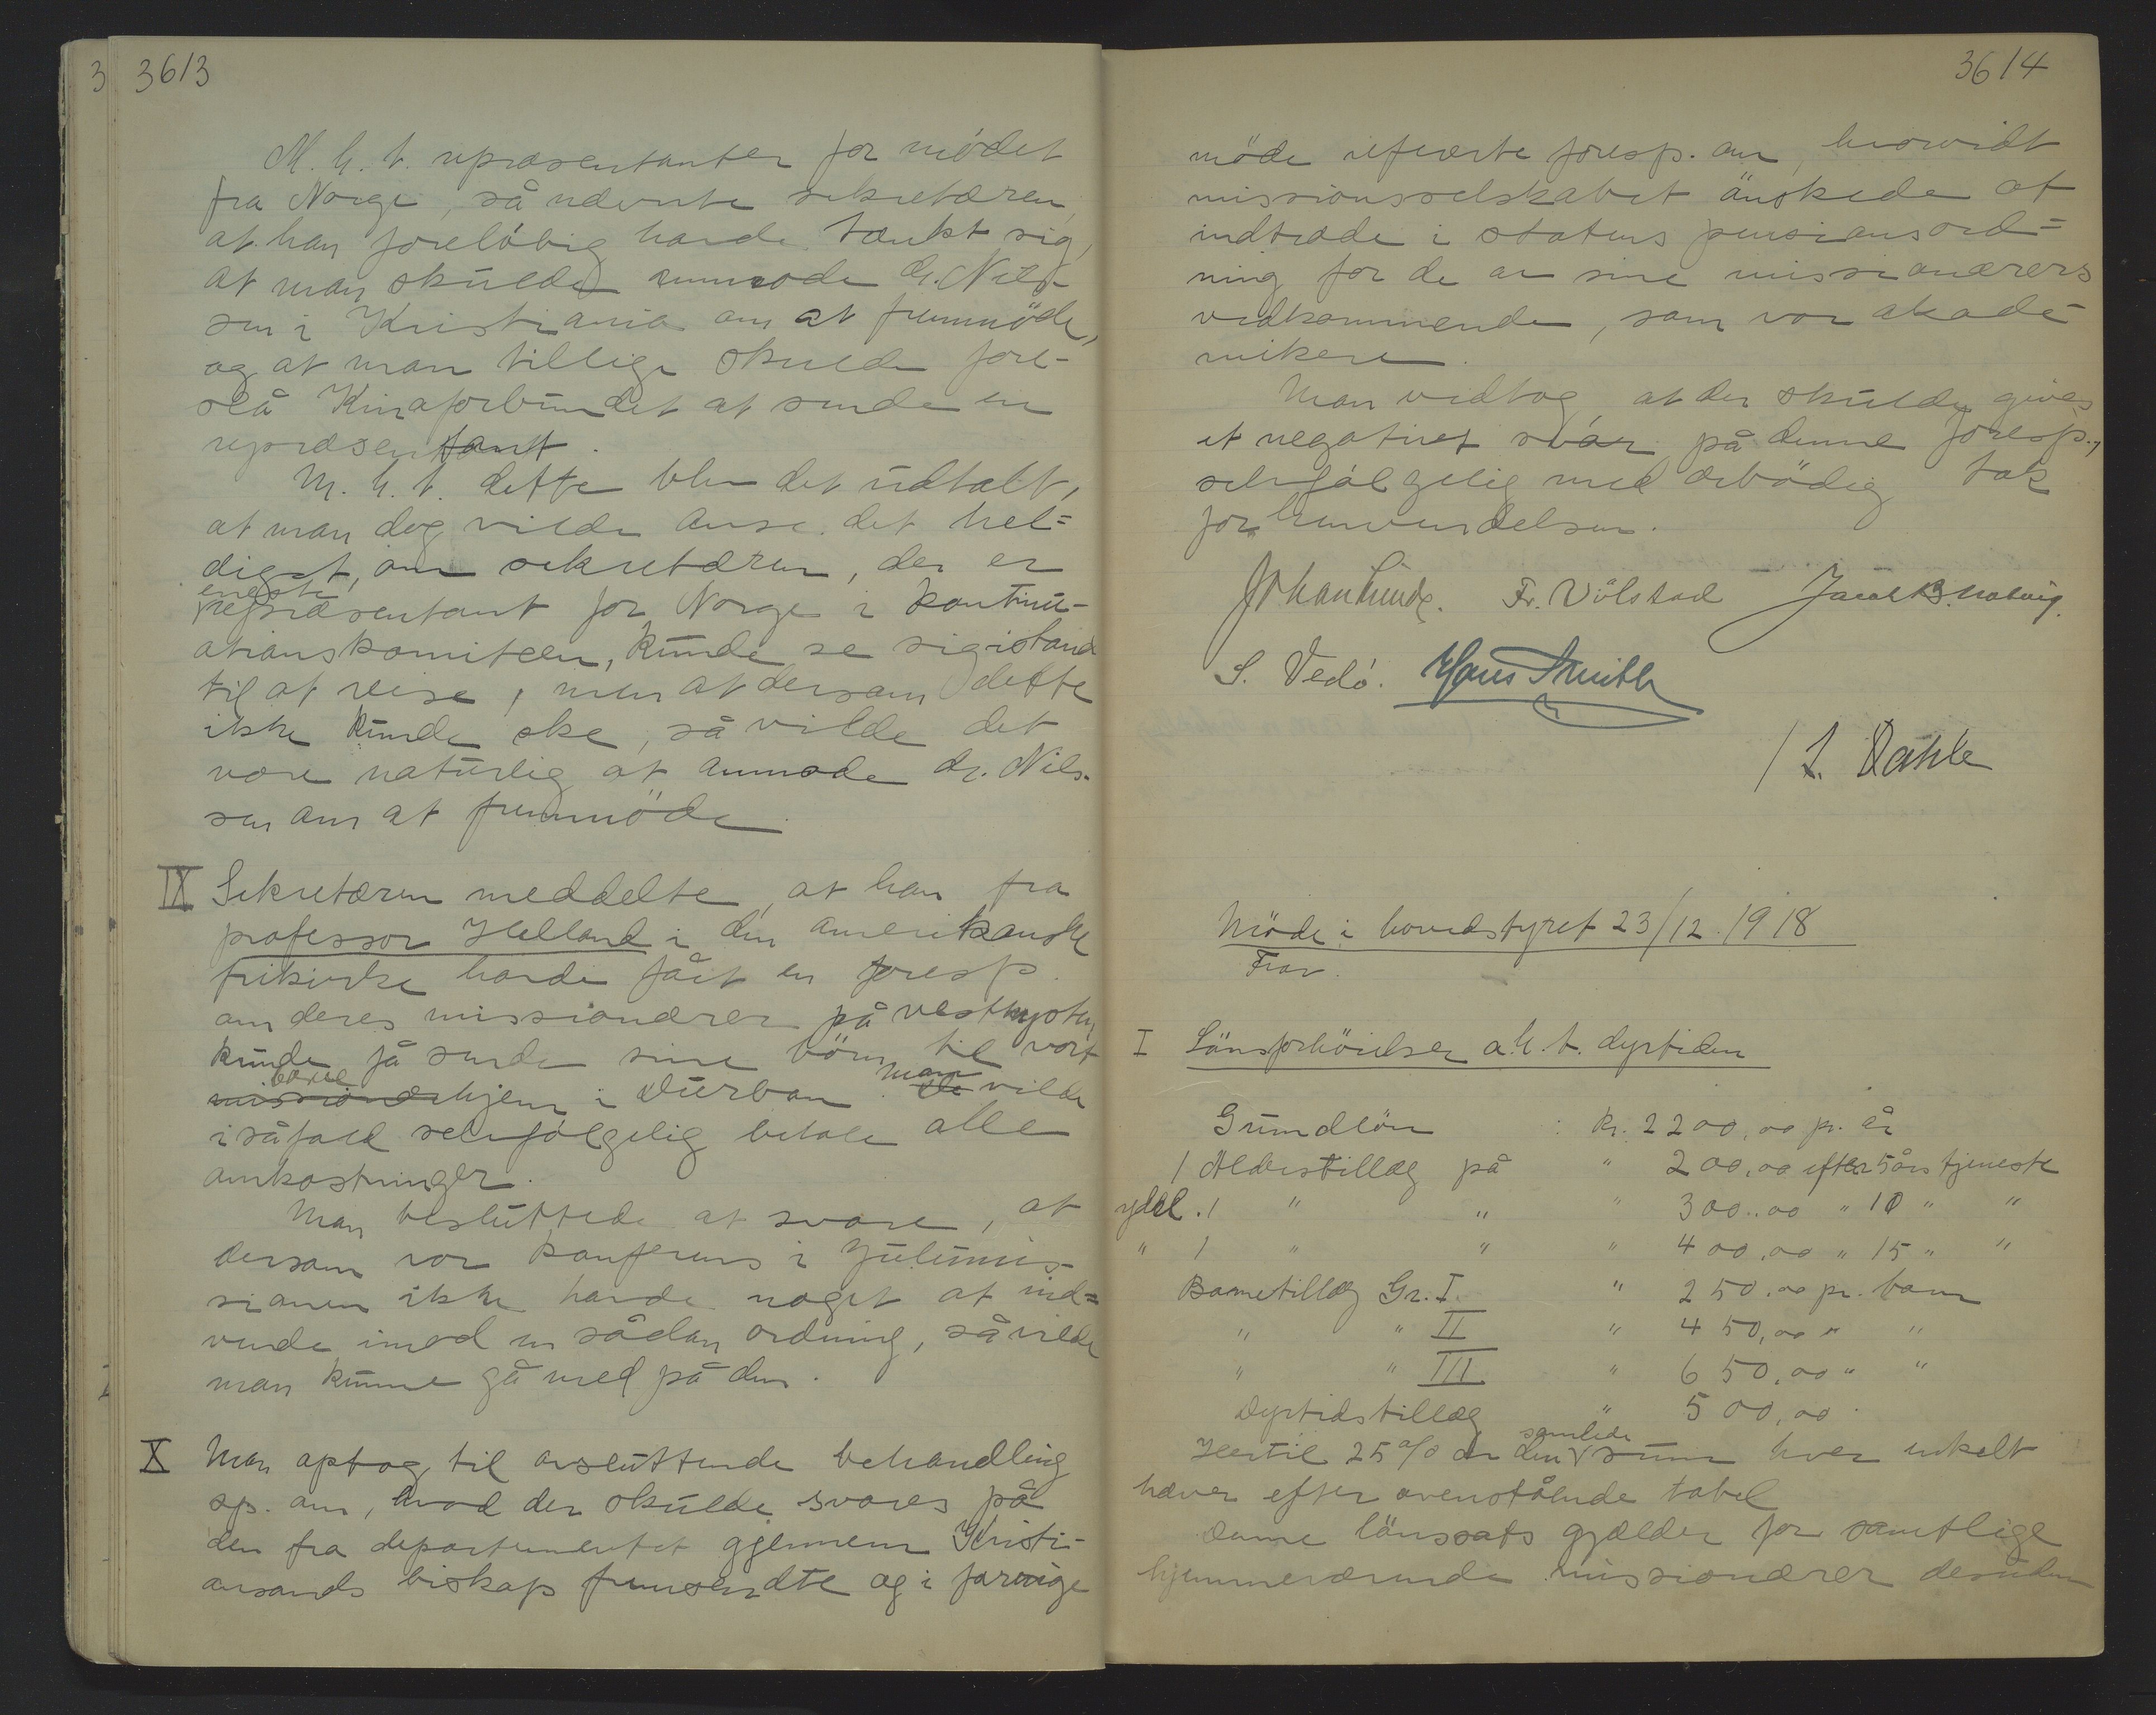 3613
M. h. t. repræsentanter for mödet
fra Norge, så nævnte sekretæren,
at han foreløbig havde tænkt sig,
at man skulde anmode dr. Nils-
sen i Kristiania om at fremmöde,
og at man tillige skulde fore-
slå Kinaforbundet at sende en
repræsentant.
M. h. t. dette blev det udtalt,
at man dog vilde anse det hel=
digst, om sekretæren, der er
eneste
repræsentant for Norge i kontinu-
ationskomiteen, kunde se sig istand
til at reise, men at dersom dette
ikke kunde ske, så vilde det
være naturlig at anmode dr. Nils-
sen om at fremmöde.
IX Sekretæren meddelte, at han fra
professor Helland i den amerikanske
frikirke havde fået en foresp.
om deres missionærer på vestkysten
kunde få sende sine börn til vort
barne man
missionærhjem i Durban. De vilde
isåfald selvfölgelig betale alle
omkostninger.
Man besluttede at svare, at
dersom vor konferens i Zulumis-
sionen ikke havde noget at ind=
vende imod en sådan ordning, så vilde
man kunne gå med på den.
X Man optog til avsluttende behandling
sp. om, hvad der skulde svares på
den fra departementet gjennem Kristi-
ansands biskop fremsendte og i forrige
3614
möde refererte foresp. om, hvorvidt
missionsselskabet önskede at
indtræde i statens pensionsord=
ning for de av sine missionærers
vedkommende, som var akade-
mikere.
Man vedtog, at der skulde gives
et negativt svar på denne foresp.,
selvfölgelig med ærbödig tak
for henvendelsen.
Johan Lunde. Fr. Völstad Jacob B. Natvig.
S. Vedö. Hans Smith
/ L. Dahle
Möde i hovedstyret 23/12. 1918
Frav.
I Lönsforhöielser a. h. t. dyrtiden
Grundlön : kr. 2200,00 pr. år
1 Alderstillæg på " 200,00 efter 5 års tjeneste
yderl. 1 " " " 300,00 " 10 " "
" 1 " " " 400,00 " 15 " "
Barnetillæg Gr. I " 250,00 pr. barn
" " II " 450,00 " "
" " III " 650,00 " "
Dyrtidstillæg " 500,00
samlede
Hertil 25 % av den sum hver enkelt
hæver efter ovenstående tabel
Denne lönssats gjælder for samtlige
hjemmeværende missionærer desuden